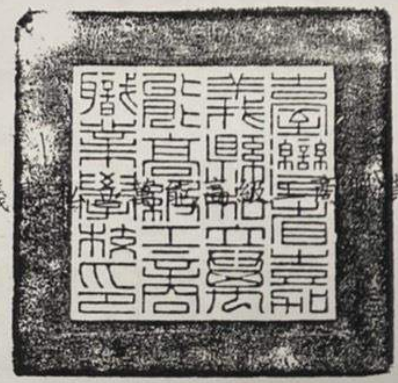 臺灣省嘉
義縣私立萬
能高級工商
職業學校印